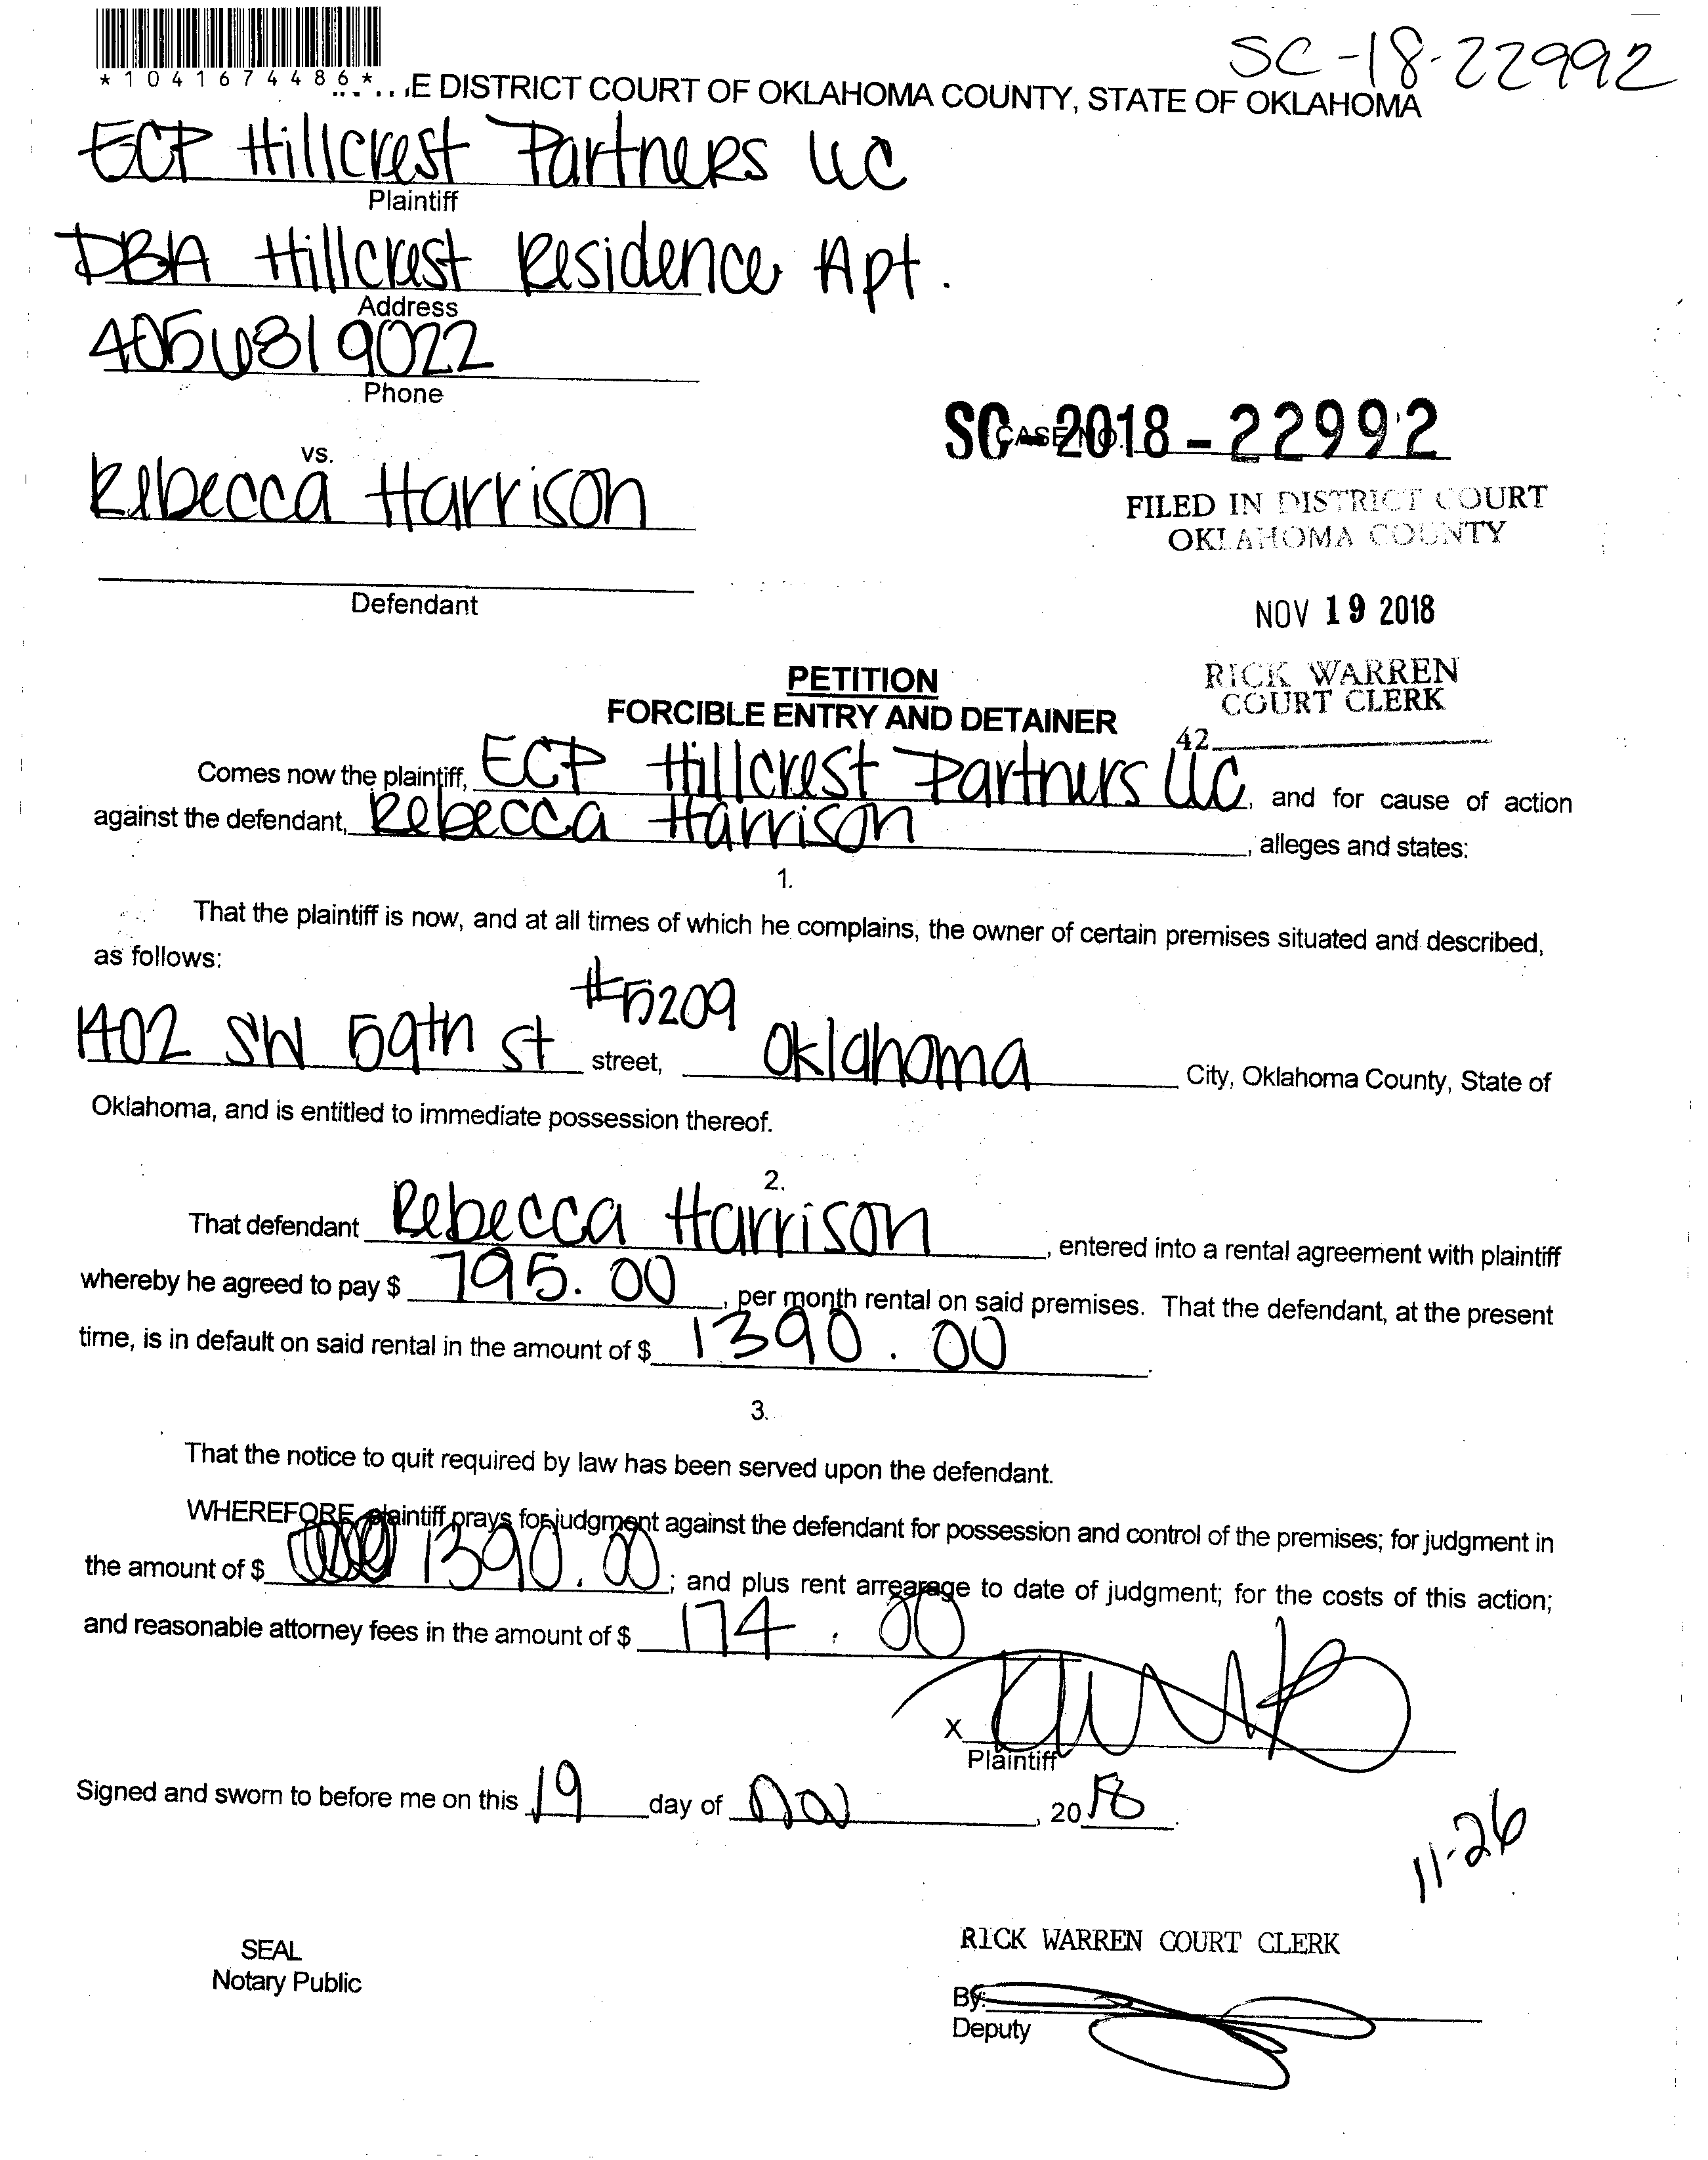 SC-18-22992
*1041674486*
E DISTRICT COURT OF OKLAHOMA COUNTY, STATE OF OKLAHOMA
ECP Hillcrest Partners LLC
Plaintiff
DBA Hillcrest Residence Apt.
Address
4056819022
Phone
SC-2018-22992
CASE NO.
vs.
Rebecca Harrison
FILED IN DISTRICT COURT
OKLAHOMA COUNTY
Defendant
NOV 19 2018
RICK WARREN
COURT CLERK
42
PETITION
FORCIBLE ENTRY AND DETAINER
Comes now the plaintiff, ECP Hillcrest Partners LLC, and for cause of action
against the defendant, Rebecca Harrison, alleges and states:
1.
That the plaintiff is now, and at all times of which he complains, the owner of certain premises situated and described,
as follows:
#5209
1402 SW 59th st street, Oklahoma City, Oklahoma County, State of
Oklahoma, and is entitled to immediate possession thereof.
2.
That defendant Rebecca Harrison, entered into a rental agreement with plaintiff
whereby he agreed to pay $ 795.00, per month rental on said premises. That the defendant, at the present
time, is in default on said rental in the amount of $ 1390.00.
3.
That the notice to quit required by law has been served upon the defendant.
WHEREFORE plaintiff prays for judgment against the defendant for possession and control of the premises; for judgment in
the amount of $ 1390.00; and plus rent arrearage to date of judgment; for the costs of this action;
and reasonable attorney fees in the amount of $ 174.00
X
Plaintiff
Signed and sworn to before me on this 19 day of Nov, 2018.
11-26
SEAL
Notary Public
RICK WARREN COURT CLERK
By:
Deputy